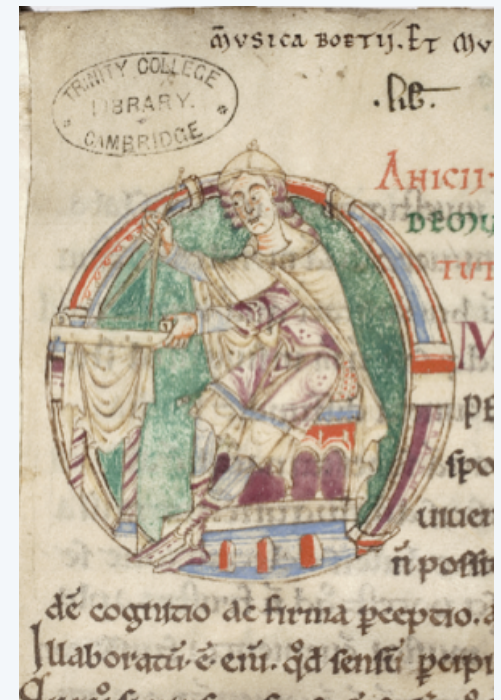 MUSICA BOETIJ. ET MU
.lib.
TRINITY COLLEGE
LIBRARY.
CAMBRIDGE
ANICII·
DEMU
TUT
M
PE
spo
uniuer
n̄ possit
dē cognitio ac firma ꝑceptio. a
Illaboratū·ē·eni. qd̄ sensū ꝑcipi